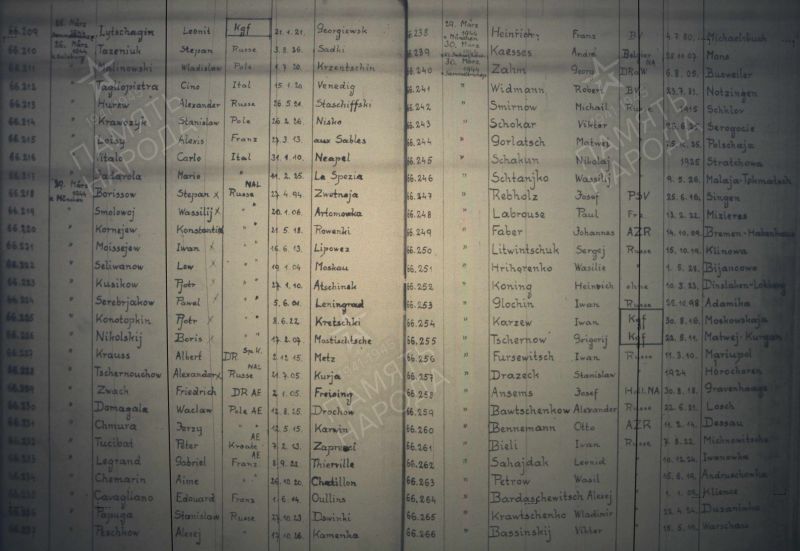 66.209 Lytschagin Leonit Kgf 21.1.21. Georgiewsk
66.210 Tazeniuk Stepan Russe 3.8.26. Sadki
66.211 Malinowski Wladislaw Pole 1.7.20. Krzentschin
66.212 " Tagliopietra Gino Ital 15.1.20 Venedig
66.213 " Hurew Alexander Russe 26.5.21. Staschiffski
66.214 " Krawczyk Stanislaw Pole 26.2.26. Nisko
66.215 " Loisy Alexis Franz 27.3.13. aux Sables
66.216 " Italo Carlo Ital 31.1.10. Neapel
" Mario " 11.2.25. La Spezia
66.218 29. März 1944 v. München Borissow Stepan x NAL Russe 27.4.94. Zwetneja
66.219 " Smolowoj Wassilij x " " 20.1.06. Artomowka
66.220 " Kornejew Konstantin " " 21.5.18. Rowenki
66.221 " Moissejew Iwan x " " 16.6.13. Lipowez
" Seliwanow Lew / " " 19.1.04 Moskau
66.223 " Kusikow Pjotr " " 27.1.10. Atschinsk
66.224 " Serebrjakow Pawel x " " 5.6.01. Leningrad
66.225 " Konotopkin Pjotr x " " 8.6.22. Kretschki
66.226 " Nikolskij Boris x " " 17.2.07. Mostischtsche
66.227 " Krauss Albert DR Sp.K. 2.12.15. Metz
66.228 " Tschernouchow Alexander x NAL Russe 21.7.05 Kurja
66.229 " Zwack Friedrich DR AE 2.1.05. Freising
66.230 " Domagala Waclaw Pole AE 12.8.25. Drochow
66.231 " Chmura Jerzy " " 12.5.15. Karwin
66.232 " Tucibat Peter AE Kroate 7.2.13. Zapresci
66.233 " Legrand Gabriel AE Franz 8.9.22. Thierville
66.234 " Chemarin Aime " 26.10.20. Chatillon
" Cavagliano Edouard Franz 1.6.14. Oullins
" Papuga Stanislaw Russe 27.10.23 Dswinki
66.237 " Peschkow Alexej " 17.10.26. Kamenka
66.238 29. März 1944 v. München Heinrich Franz BV 4.7.80. Michaelbuch
66.239 30. März Kaesses André Belgier NA 28.11.07 Mons
66.240 30. März 1944 Zahm Georg DRoW 6.8.05. Bueweiler
66.241 " Widmann Robert BV 23.7.81. Notzingen
66.242 " Smirnow Michail Russe 1915 Schklov
66.243 " Schokar Viktor " Serogocie
66.244 " Gorlatsch Matwej " Polschaja
66.245 " Schakun Nikolaj " 1925 Stratchowa
66.246 " Schtanjko Wassilij " 9.5.26. Malaja-Tokmatsch
66.247 " Rebholz Josef PSV 25.6.10. Singen
66.248 " Labrouse Paul 13.2.22. Mizieres
66.249 " Faber Johannes AZR 14.10.09. Bremen-Habenhausen
66.250 " Litwintschuk Sergej Russe 15.10.19. Klinowa
66.251 " Hrihorenko Wasilie " 1.5.28. Bijancowe
66.252 " Koning Heinrich ohne 10.3.23. Dinslaken-Lohberg
66.253 " Glochin Iwan Russe 22.10.98 Adamika
66.254 " Karzew Iwan Kgf 30.8.16. Moskowskaja
66.255 " Tschernow Grigorij Kgf 22.8.11. Matwej-Kurgan
66.256 " Fursewitsch Iwan Russe 11.3.10. Mariupol
66.257 " Drazeck Stanislaw 1924 Horochoren
66.258 " Ansems Josef Holl.NA 30.8.18. Gravenhaage
66.259 " Bawtschenkow Alexander Russe 22.6.21. Losch
66.260 " Bennemann Otto AZR 11.2.14. Dessau
66.261 " Bieli Iwan Russe 7.8.22. Michnowitsche
66.262 " Sahajdak Leonid " 10.12.24. Iwanowka
66.263 " Petrow Wasil " 15.6.19. Andruschowka
66.264 " Bardaschewitsch Alexej " Klience
66.265 " Krawtschenko Wladimir " 22.4.24. Dusaninka
66.266 " Bassinskij Viktor " 15.5.19. Warschau
ПАМЯТЬ НАРОДА